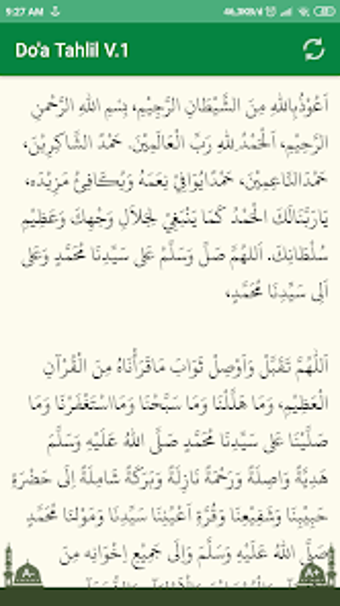 9:27 AM
Do'a Tahlil V.1
اَعُوْذُبِاللهِ مِنَ الشَّيْطَانِ الرَّجِيْمِ، بِسْمِ اللهِ الرَّحْمٰنِ
الرَّحِيْمِ، اَلْحَمْدُ للهِ رَبِّ الْعَالَمِيْنَ. حَمْدَ الشَّاكِرِيْنَ،
حَمْدَالنَّاعِمِيْنَ، حَمْدًايُوَافِيْ نِعَمَهُ وَيُكَافِئُ مَزِيْدَه،
يَارَبَّنَالَكَ الْحَمْدُ كَمَا يَنْبَغِيْ لِجَلاَلِ وَجْهِكَ وَعَظِيْمِ
سُلْطَانِكَ. اَللهُمَّ صَلِّ وَسَلِّمْ عَلى سَيِّدِنَا مُحَمَّدٍ وَعَلى
آلِى سَيِّدِنَا مُحَمَّدٍ،
اَللّٰهُمَّ تَقَبَّلْ وَاَوْصِلْ ثَوَابَ مَاقَرَأْنَاهُ مِنَ الْقُرْآنِ
الْعَظِيْمِ، وَمَا هَلَّلْنَا وَمَا سَبَّحْنَا وَمَااسْتَغْفَرْنَا وَمَا
صَلَّيْنَا عَلى سَيِّدِنَا مُحَمَّدٍ صَلَّى اللهُ عَلَيْهِ وَسَلَّمَ
هَدِيَّةً وَاصِلَةً وَرَحْمَةً نَازِلَةً وَبَرَكَةً شَامِلَةً اِلَى حَضْرَةِ
حَبِيْبِنَا وَشَفِيْعِنَا وَقُرَّةِ اَعْيُنِنَا سَيِّدِنَا وَمَوْلنَا مُحَمَّدٍ
صَلَّى اللهُ عَلَيْهِ وَسَلَّمَ وَاِلَى جَمِيْعِ اِخْوَانِه مِنَ
A-
A+